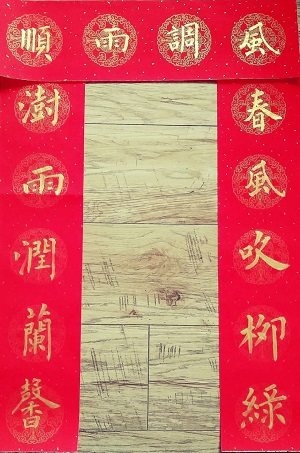 風調雨順
春風吹柳綠
澍雨潤蘭馨